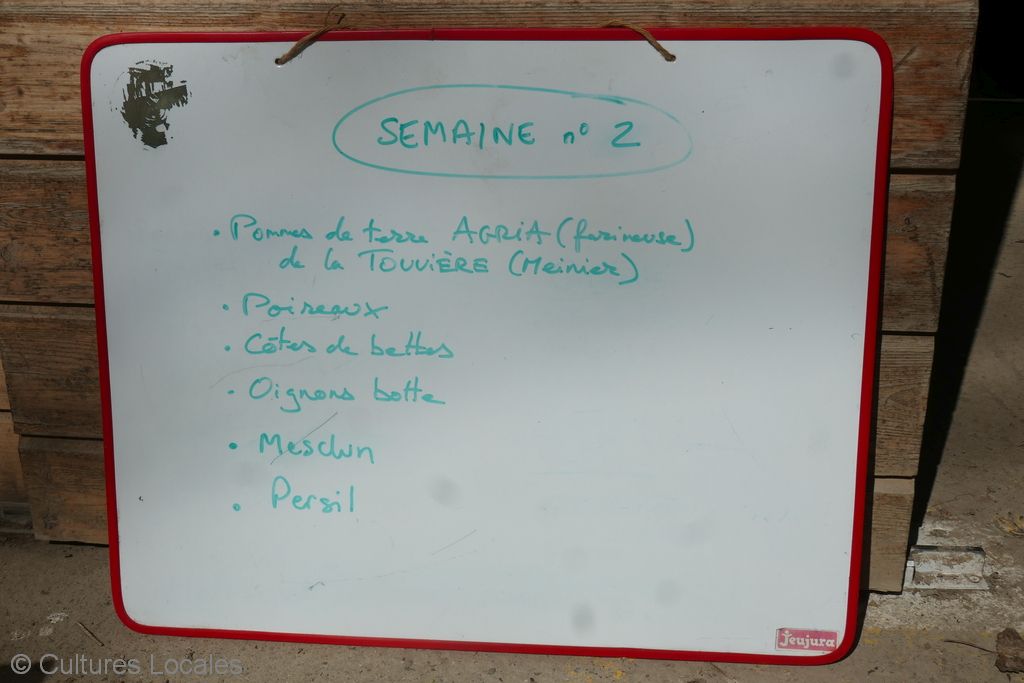 SEMAINE n° 2
• Pommes de terre AGRIA (farineuse)
de la TOUVIÈRE (Meinier)
• Poireaux
• Côtes de bettes
• Oignons botte
• Mesclun
• Persil
Jeujura
© Cultures Locales